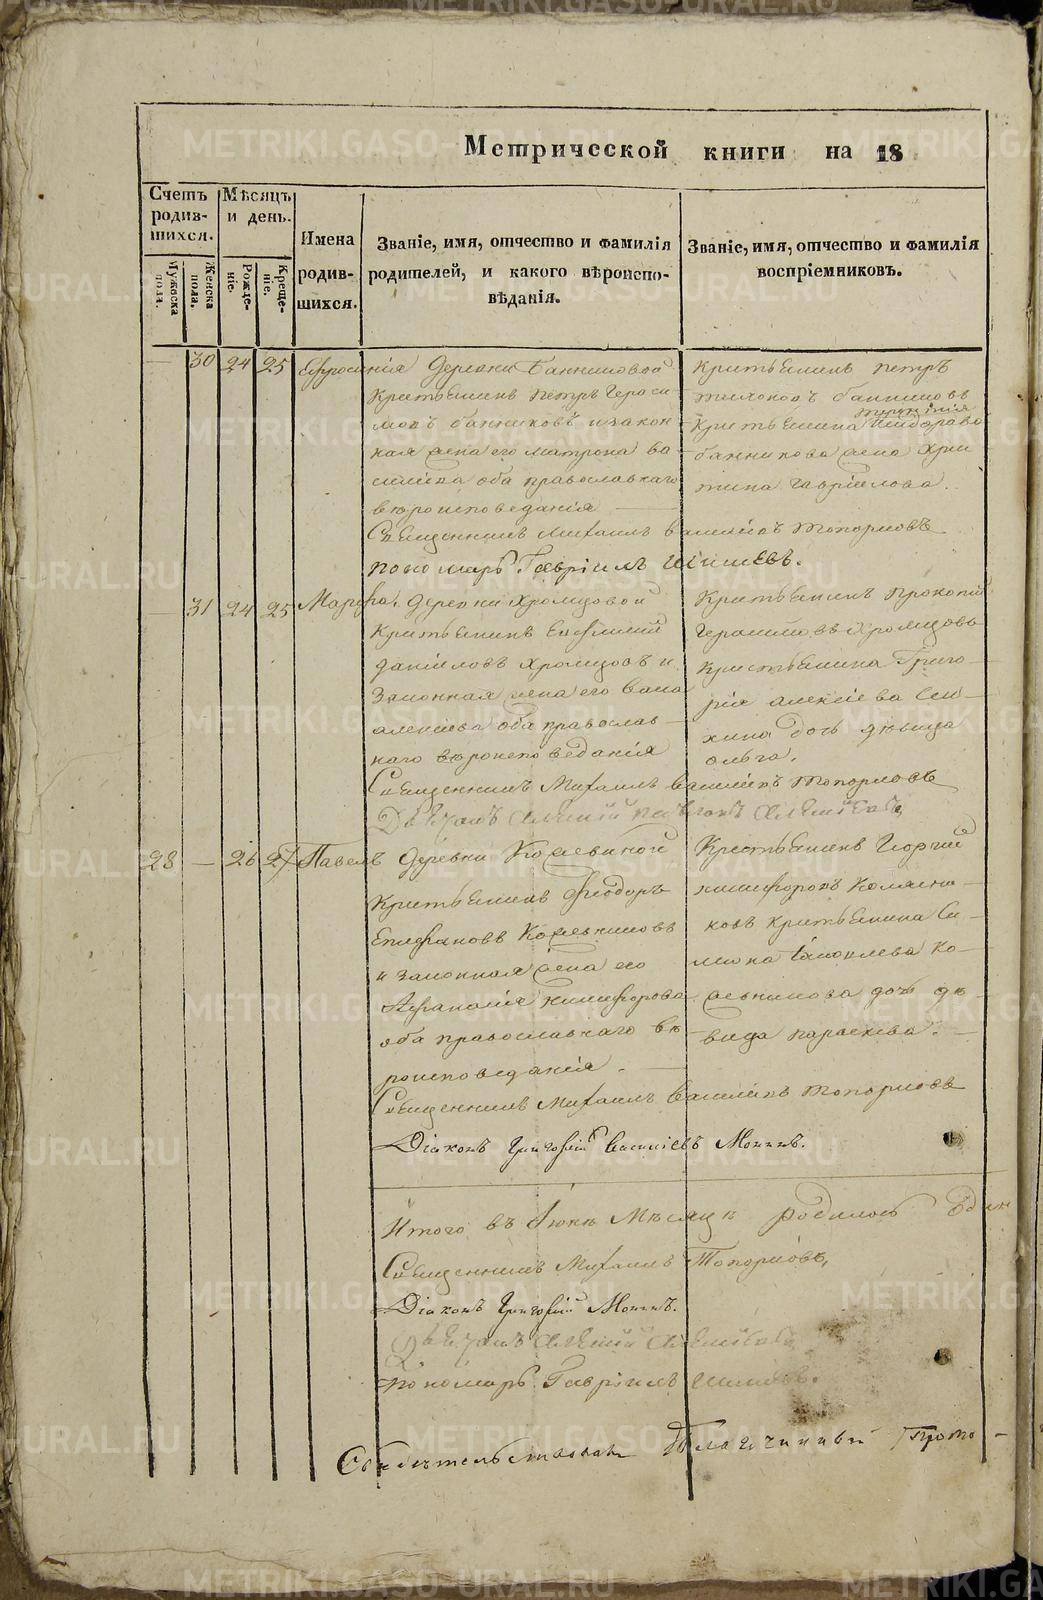 Метрической книги на 18
Счетъ родив-шихся.
Мѣсяцъ и день.
Имена родив-шихся.
Званіе, имя, отчество и фамилія родителей, и какого вѣроиспо-вѣданія.
Званіе, имя, отчество и фамилія воспріемниковъ.
Мужеска пола.
Женска пола.
Рожде-ніе.
Креще-ніе.
— 30 24 25 Ефросинія
Деревни Банниковой
Крестьянинъ Петръ Гераси
мовъ Банниковъ и закон
ная жена его Матрона Ва
сильева оба православнаго
вѣроисповеданія
Крестьянинъ Петръ
Тихоновъ Банниковъ
Крестьянина
Банникова жена Хрис
тина Гавриилова.
Священникъ Михаилъ Васильевъ Топорковъ
Пономарь Гавріилъ Шишевъ.
— 31 24 25 Марѳа.
Деревни Хромцовой
Крестьянинъ Евфимий
Даніиловъ Хромцовъ и
Законная жена его Васса
Алексиева оба православ
наго вѣроисповеданія
Крестьянинъ Прокопій
Герасимовъ Хромцовъ
Крестьянина Григо-
рія Алексіева
дочь дѣвица
Ольга.
Священникъ Михаилъ Васильевъ Топорковъ
28 — 26 27 Павелъ
Деревни Кожевиной
Крестьянинъ Ѳеодоръ
Епифановъ Кожевниковъ
и законная жена его
Афанасія Никифорова
оба православнаго вѣ
роисповеданія.
Крестьянинъ Георгий
Никифоровъ Колясни-
ковъ Крестьянина Си-
Ко-
жевникова дочь дѣ
вица Параскева.
Священникъ Михаилъ Васильевъ Топорковъ
Діаконъ Григорій Василіевъ
Итого въ Іюнѣ Мѣсяцѣ родилось Один
Священникъ Михаилъ Топорковъ,
Діаконъ Григорій
Пономарь Гавріилъ Шишевъ.
Свидѣтельствовалъ Благочинный Прото-
METRIKI.GASO-URAL.RU